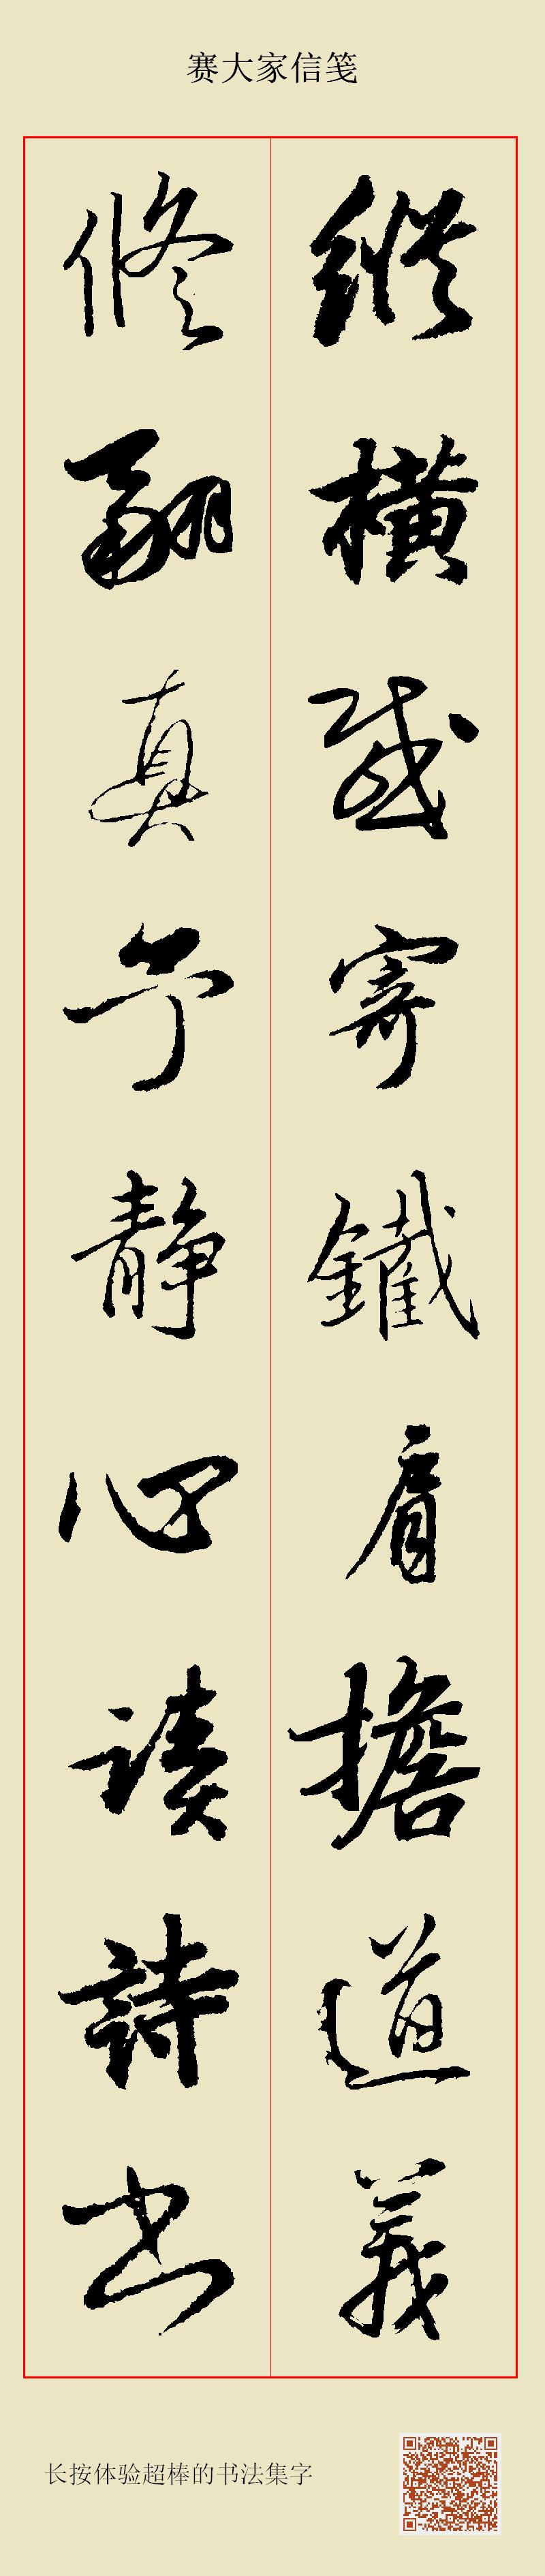 赛大家信笺
縱橫盛寄鐵肩擔道義
修翮真予靜心讀詩書
长按体验超棒的书法集字